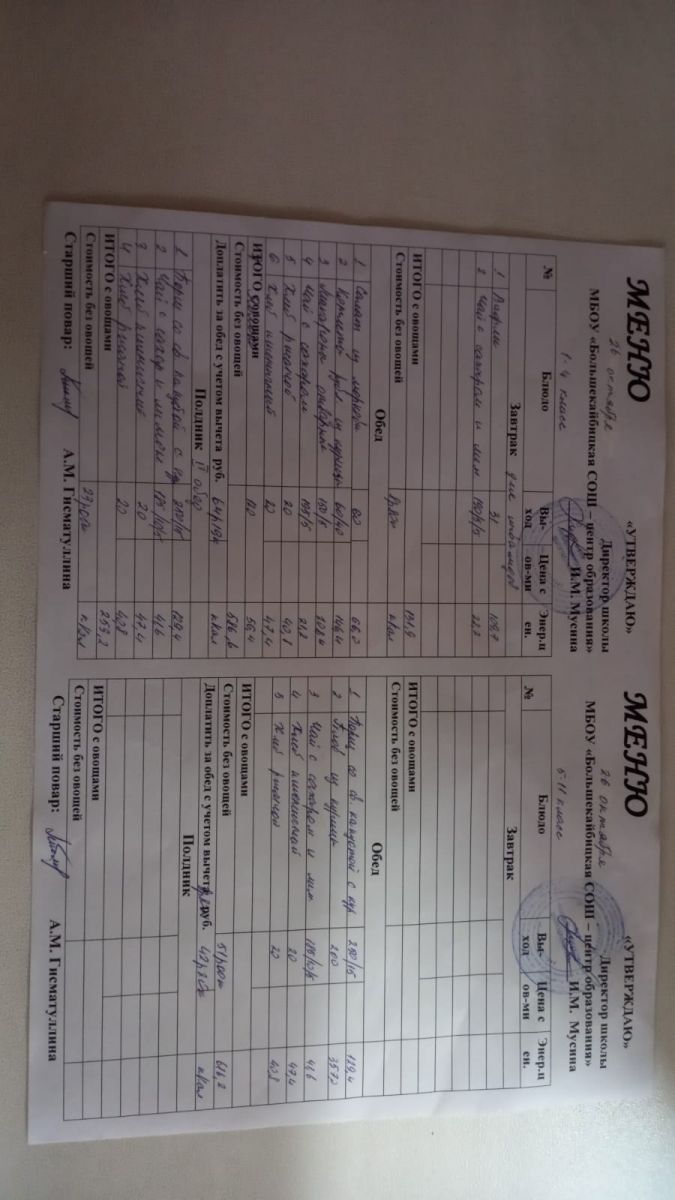 «УТВЕРЖДАЮ»
Директор школы
И.М. Мусина
МБОУ «Большекайбицкая СОШ – центр образования»
МЕНЮ
26 октября
1-4 класс
№ Блюдо Вы-ход Цена с ов-ми Энер.ц ен.
Завтрак
1 Вафли 31 109,7
2 Чай с сахаром и лим 22,2
ИТОГО с овощами 131,9
Стоимость без овощей ккал
Обед
1 Салат из моркови 60
2 Котлета из курицы
3 Макароны отварные 150/5
4 Чай с сахаром
5 Хлеб ржаной 20
6 Хлеб пшеничный 20 47,4
ИТОГО с овощами
Стоимость без овощей
Доплатить за обед с учетом вычета руб. ккал
Полдник
1 Борщ со св капустой с кур 250/15 129,4
2 Чай с сахар и лимон 41,6
3 Хлеб пшеничный 20 47,4
4 Хлеб ржаной 20 40,8
ИТОГО с овощами 259,2
Стоимость без овощей ккал
Старший повар: А.М. Гисматуллина
«УТВЕРЖДАЮ»
Директор школы
И.М. Мусина
МБОУ «Большекайбицкая СОШ – центр образования»
МЕНЮ
26 октября
5-11 класс
№ Блюдо Вы-ход Цена с ов-ми Энер.ц ен.
Завтрак
ИТОГО с овощами
Стоимость без овощей
Обед
1 Борщ со св. капустой с кур 250/15 129,4
2 Плов из курицы 200
3 Чай с сахаром и лим 41,6
4 Хлеб пшеничный 20 47,4
5 Хлеб ржаной 20 40,8
ИТОГО с овощами 616,2
Стоимость без овощей
Доплатить за обед с учетом вычета руб. ккал
Полдник
ИТОГО с овощами
Стоимость без овощей
Старший повар: А.М. Гисматуллина